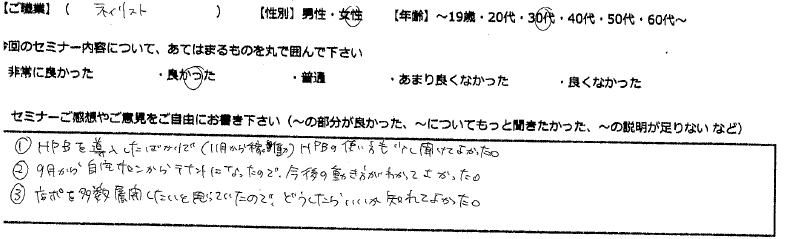 【ご職業】( ネイリスト ) 【性別】男性・女性 【年齢】~19歳・20代・30代・40代・50代・60代~
今回のセミナー内容について、あてはまるものを丸で囲んで下さい
非常に良かった ・良かった ・普通 ・あまり良くなかった ・良くなかった
セミナーご感想やご意見をご自由にお書き下さい(~の部分が良かった、~についてもっと聞きたかった、~の説明が足りない など)
① HPBを導入したばかりで(11月から稼働)HPBの使い方も少し聞けてよかった。
② 9月から自宅サロンからテナントになったので、今後の動き方がわかってよかった。
③ 店舗を多数展開したいと思っていたので、どうしたらいいか知れてよかった。